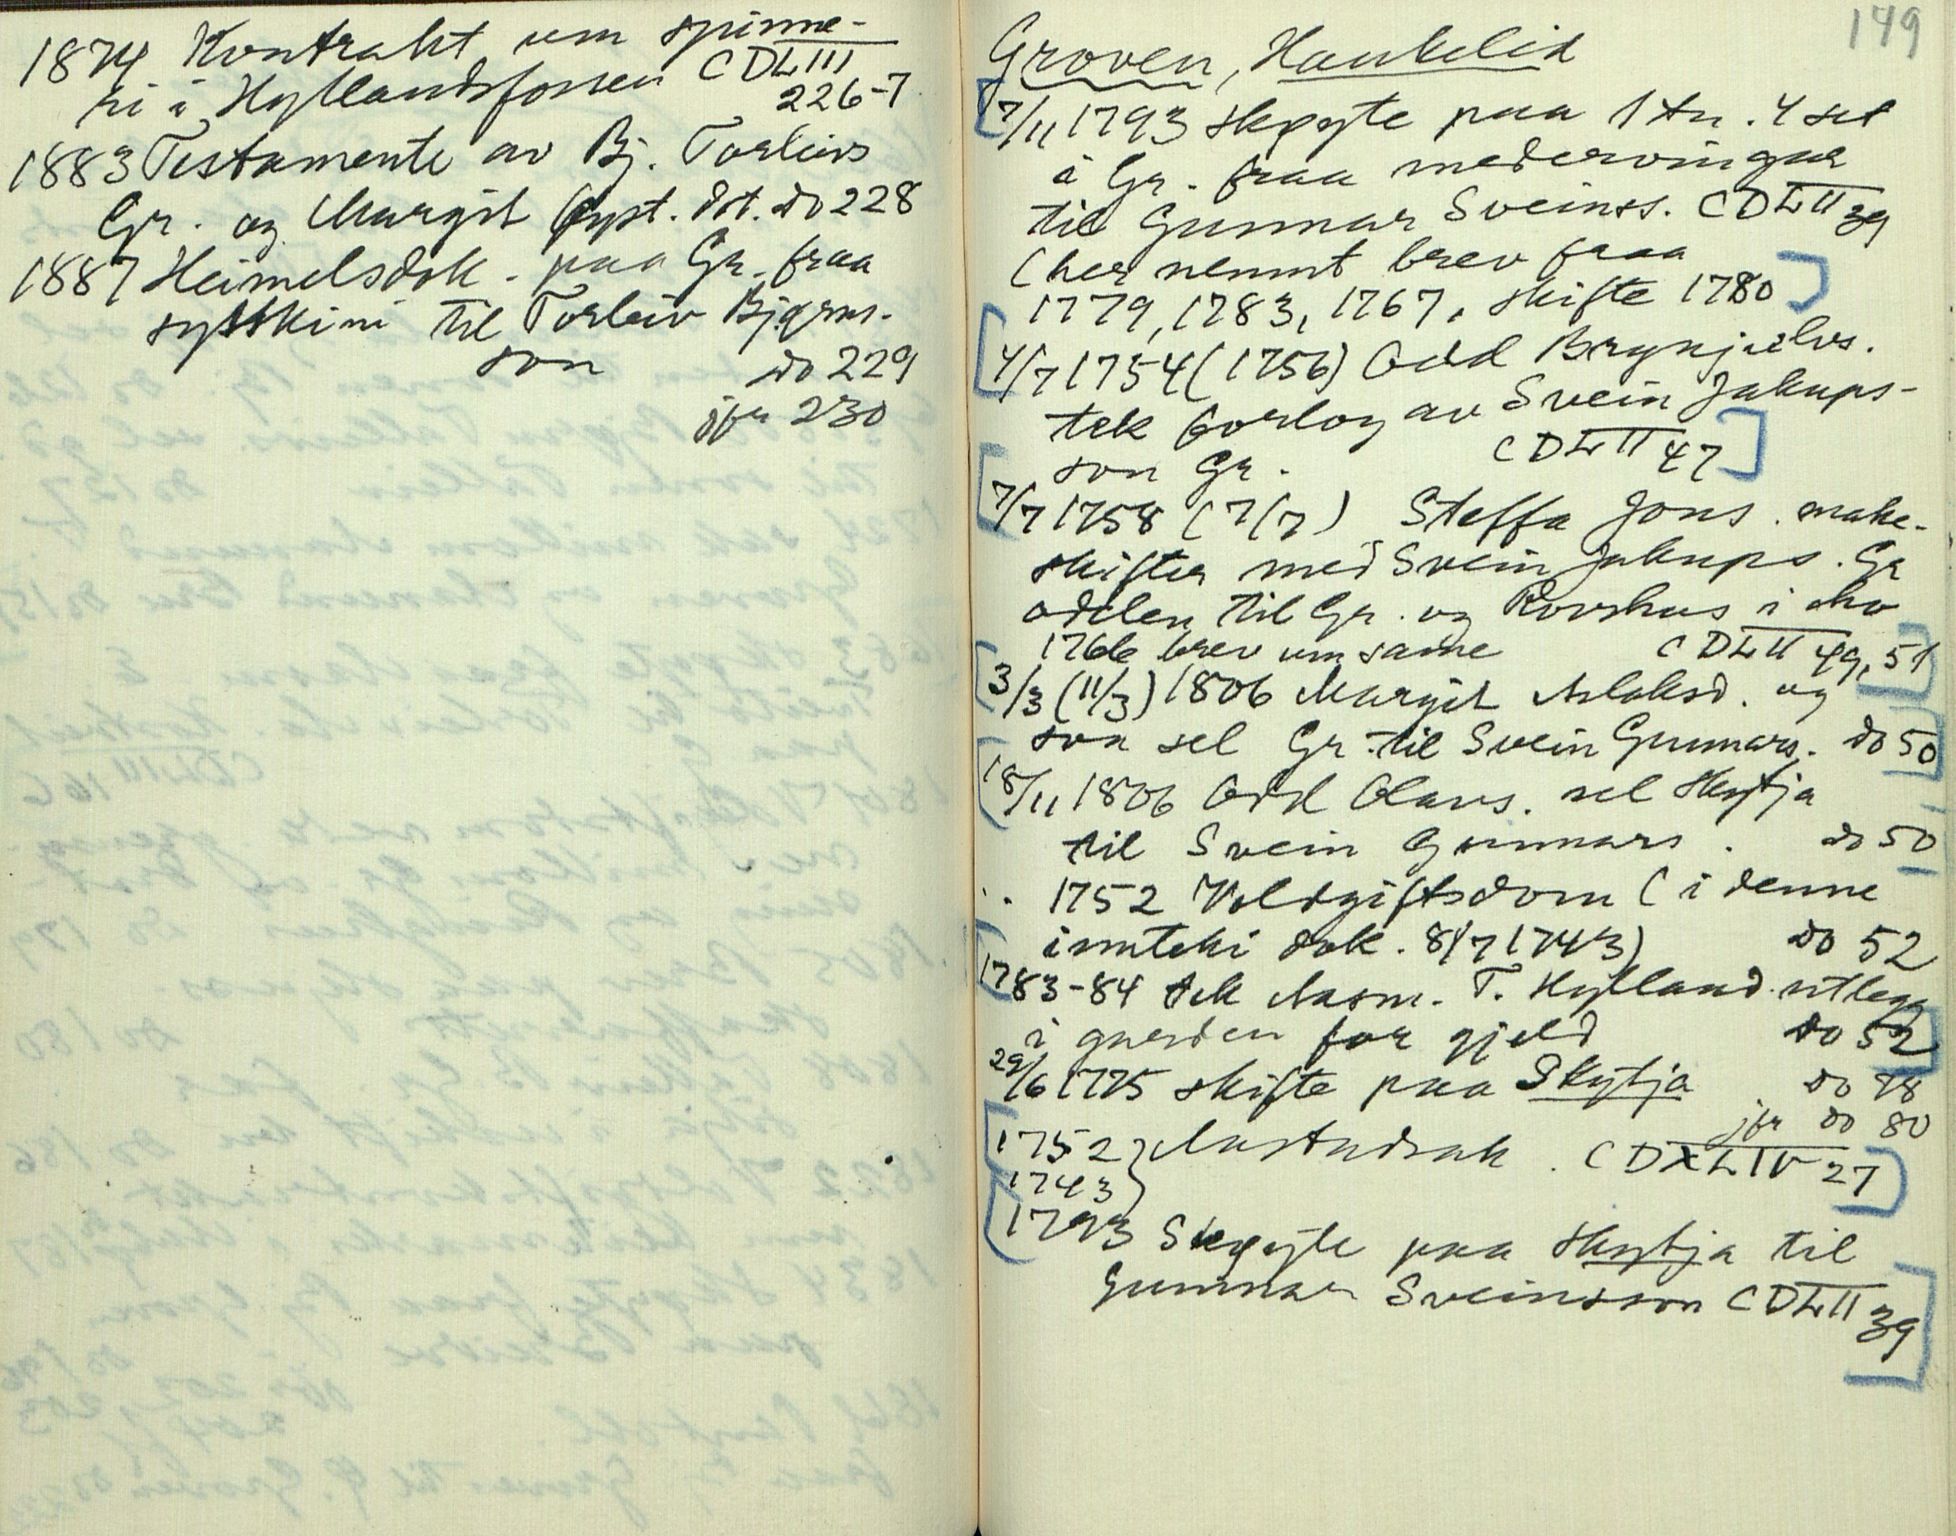 1874 Kontrakt um spinne-
ri i Hyllandsfossen CDLIII
226-7
1883 Testamente av Bj. Torleivs
Gr. og Margit Øyst. dt. do 228
1887 Heimelsdok. paa Gr. fraa
syskini til Torleiv Bjørns-
son do 229
jfr 230
149
Groven, Haukelid
7/11 1793 skøyte paa 1 tn. 4 set
i Gr. fraa medervingar
til Gunnar Sveinss. CDLII 39
(her nemnt brev fraa
1779, 1783, 1767, skifte 1780
4/7 1754 (1756) Odd Brynjulvs.
tek forlog av Svein Jakups-
son Gr. CDLII 47
7/7 1758 (7/7) Steffa Jons. make-
skifter med Svein Jakups. Gr
odelen til Gr. og Rovhus i
1766 brev um same CDLII 49, 51
3/3 (11/3) 1806 Margit Aslaksd. og
son sel Gr. til Svein Gunnars. do 50
18/11 1806 Odd Olavs. sel Skytja
til Svein Gunnars. do 50
.. 1752 Voldgiftsdom (i denne
innteki dok. 8/7 1743) do 52
1783-84 tek Aasm. T. Hylland utlegg
i garden for gjeld do 52
29/6 1775 skifte paa Skytja do 78
jfr do 80
1752 } Aastadsak. CDXLIV 27
1743
1793 Skøyte paa Skytja til
Gunnar Sveinsson CDLII 39